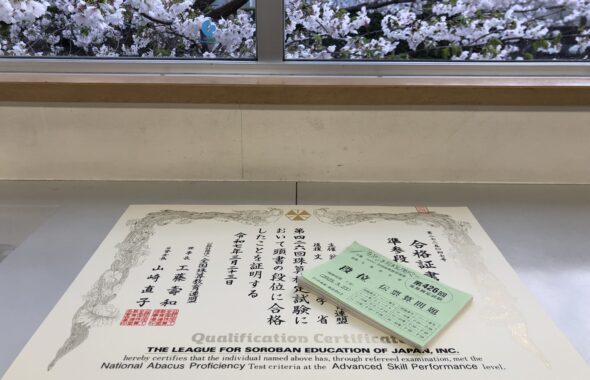 合格証書
準参段
第四二六回珠算検定試験に
おいて頭書の段位に合格
したことを証明する
令和七年三月二十三日
全国珠算教育連盟
工藤壽和
山﨑直子
第426回
段位 伝票算問題
Qualification Certificate
THE LEAGUE FOR SOROBAN EDUCATION OF JAPAN, INC.
hereby certifies that the individual named above has, through refereed examination, met the
National Abacus Proficiency Test criteria at the Advanced Skill Performance level.